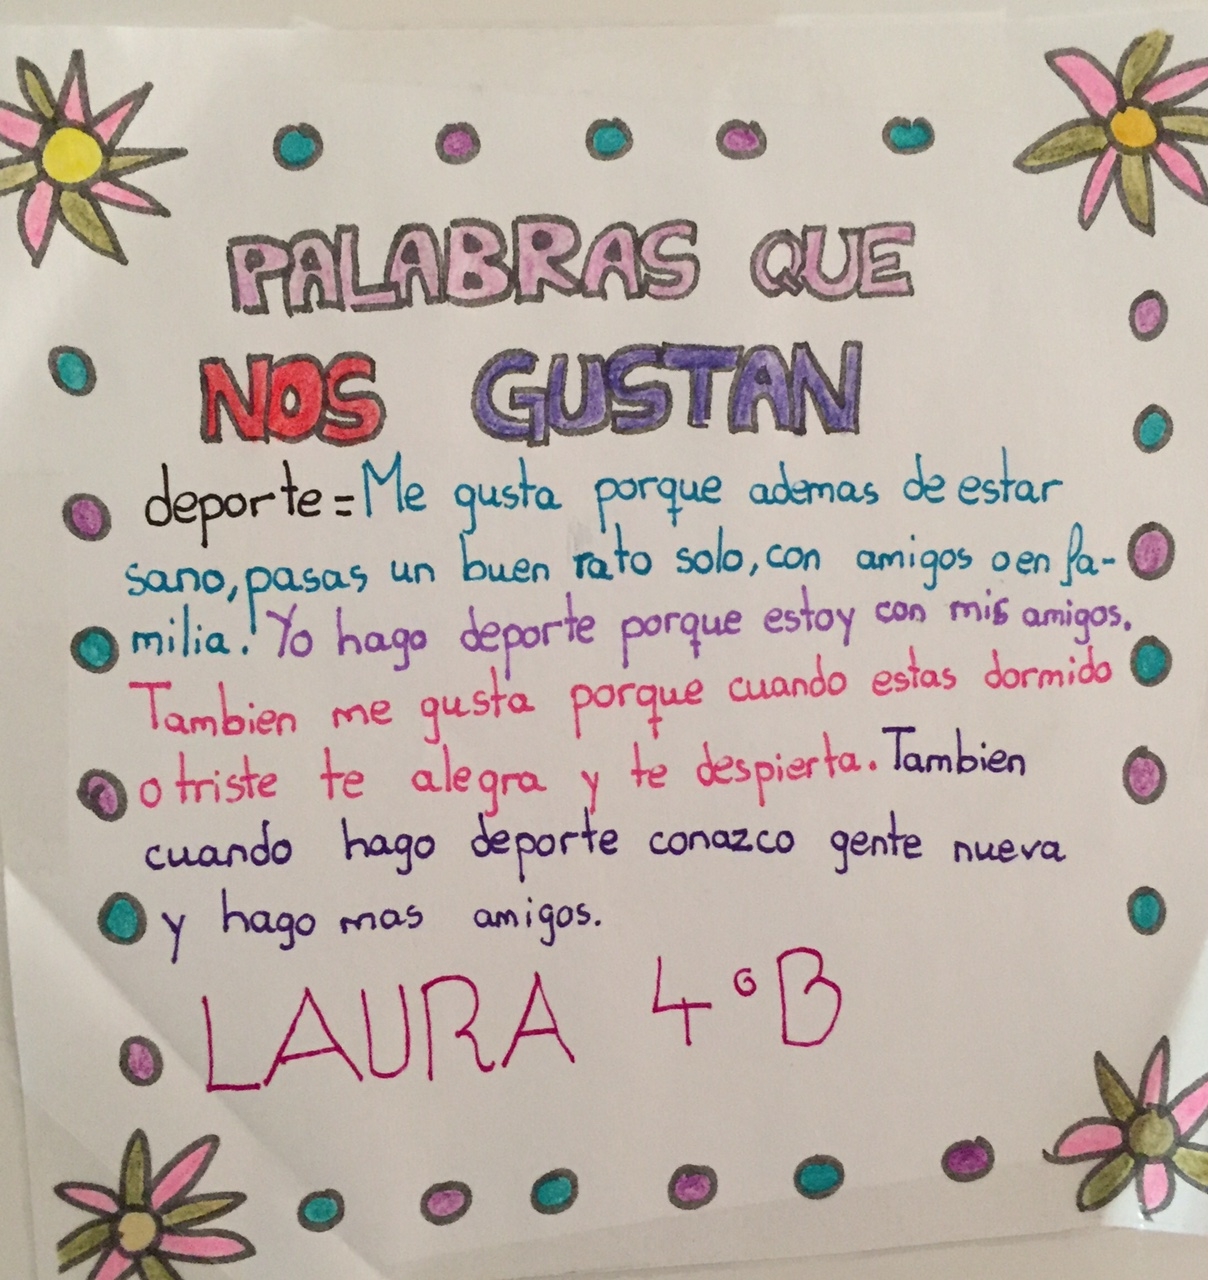 PALABRAS QUE
NOS GUSTAN
deporte=Me gusta porque ademas de estar
sano,pasas un buen rato solo,con amigos o en fa-
milia.! Yo hago deporte porque estoy con mis amigos.
Tambien me gusta porque cuando estas dormido
o triste te alegra y te despierta. Tambien
cuando hago deporte conazco gente nueva
y hago mas amigos.
LAURA 4ºB